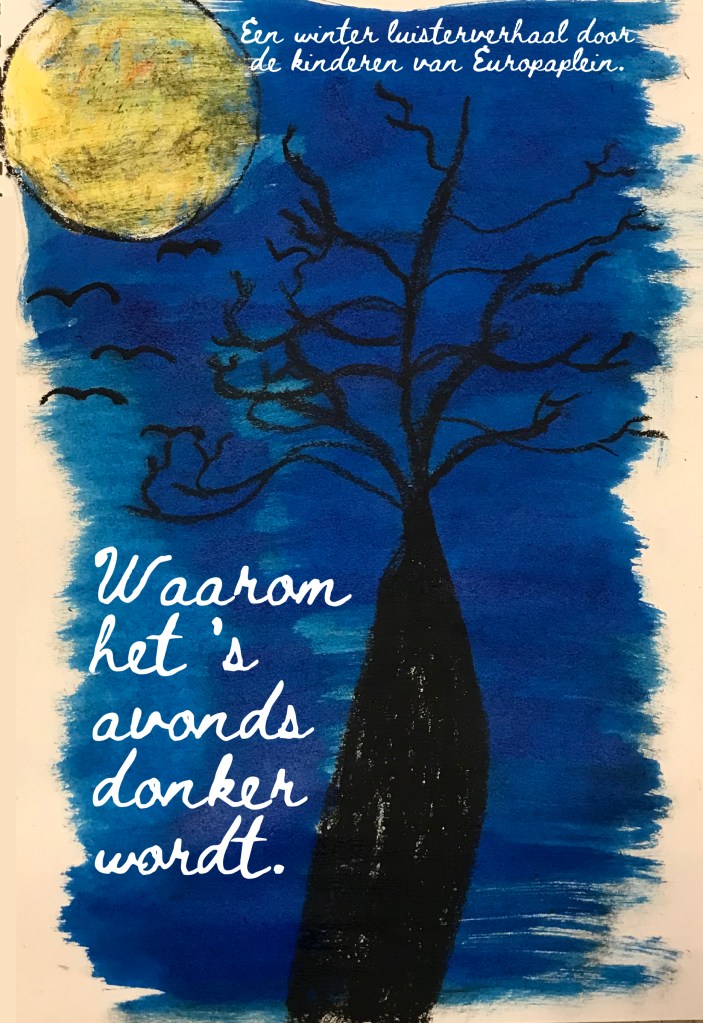 Een winter luisterverhaal door
de kinderen van Europaplein.
Waarom
het 's
avonds
donker
wordt.